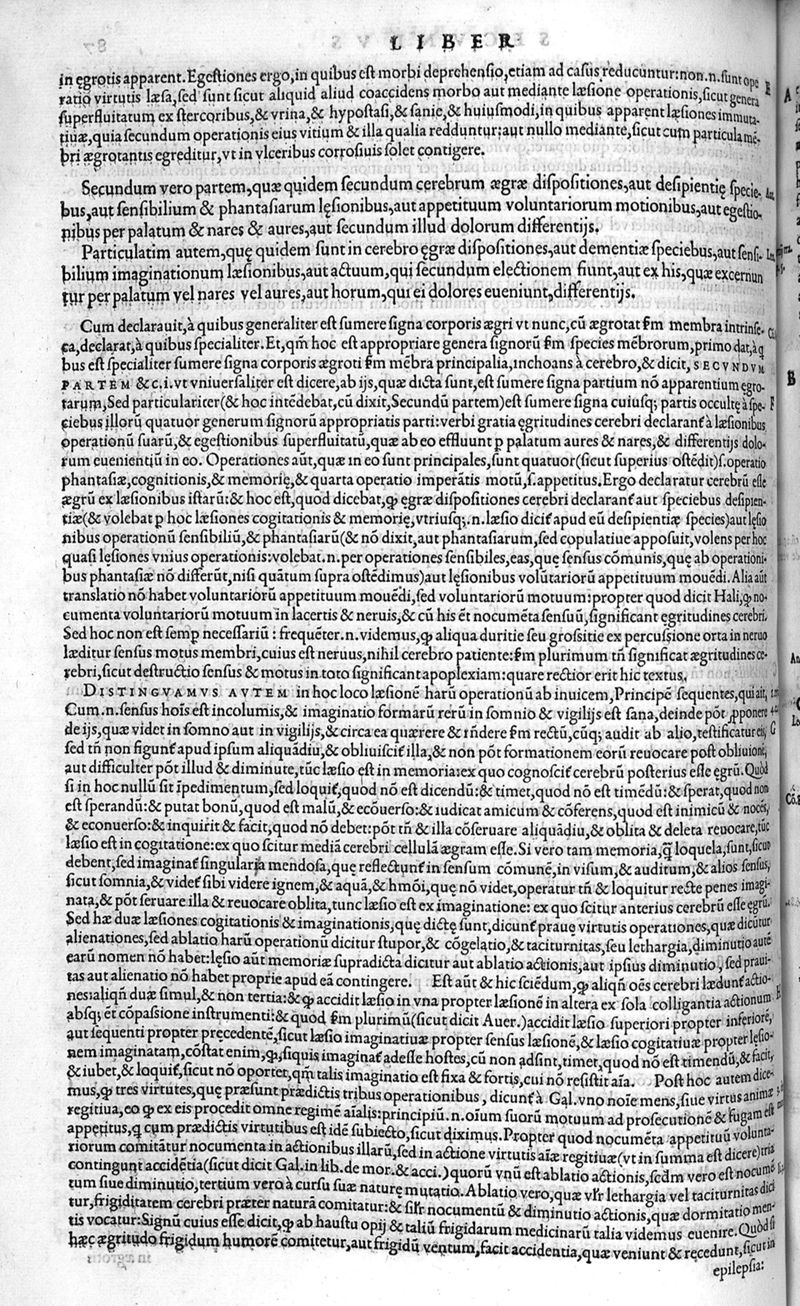 LIBER
in ęgrotis apparent. Egestiones ergo, in quibus est morbi deprehensio, etiam ad casus reducuntur: non .n. sunt ope
ratio virtutis læsa, sed sunt sicut aliquid aliud coaccidens morbo aut mediante læsione operationis, sicut genera
superfluitatum ex stercoribus, & vrina, & hypostasi, & sanie, & huiusmodi, in quibus apparent læsiones immuta-
tiuæ, quia secundum operationis eius vitium & illa qualia redduntur: aut nullo mediante, sicut cum particula mē-
bri ægrotantis egreditur, vt in vlceribus corrosiuis solet contigere.
Secundum vero partem, quæ quidem secundum cerebrum ægræ dispositiones, aut desipientię specie-
bus, aut sensibilium & phantasiarum lęsionibus, aut appetituum voluntariorum motionibus, aut egestio-
nibus per palatum & nares & aures, aut secundum illud dolorum differentijs.
Particulatim autem, quę quidem sunt in cerebro ęgræ dispositiones, aut dementiæ speciebus, aut sensi-
bilium imaginationum læsionibus, aut actuum, qui secundum electionem fiunt, aut ex his, quæ excernun
tur per palatum vel nares vel aures, aut horum, qui ei dolores eueniunt, differentijs.
Cum declarauit, à quibus generaliter est sumere signa corporis ægri vt nunc, cū ægrotat fm membra intrinse-
ca, declarat, à quibus specialiter. Et, qm̄ hoc est appropriare genera signorū fm species mēbrorum, primo dat, à q
bus est specialiter sumere signa corporis ægroti fm mēbra principalia, inchoans à cerebro, & dicit, SECVNDVM
PARTEM &c. i. vt vniuersaliter est dicere, ab ijs, quæ dicta sunt, est sumere signa partium nō apparentium ęgro-
tarum, Sed particulariter (& hoc intēdebat, cū dixit, Secundū partem) est sumere signa cuiusq; partis occultę à spe-
ciebus illorū quatuor generum signorū appropriatis parti: verbi gratia ęgritudines cerebri declarant̄ à læsionibus
operationū suarū, & egestionibus superfluitatū, quæ ab eo effluunt p palatum aures & nares, & differentijs dolo-
rum euenientiū in eo. Operationes aūt, quæ in eo sunt principales, sunt quatuor (sicut superius ostēdit) s. operatio
phantasiæ, cognitionis, & memorię, & quarta operatio imperātis motū, s. appetitus. Ergo declaratur cerebrū esse
ægrū ex læsionibus istarū: & hoc est, quod dicebat, ꝙ ęgræ dispositiones cerebri declarant̄ aut speciebus desipien-
tiæ (& volebat p hoc læsiones cogitationis & memorię, vtriusq; .n. læsio dicit̄ apud eū desipientiæ species) aut lęsio
nibus operationū sensibiliū, & phantasiarū (& nō dixit, aut phantasiarum, sed copulatiue apposuit, volens per hoc
quasi lęsiones vnius operationis: volebat .n. per operationes sensibiles, eas, quę sensus cōmunis, quę ab operationi-
bus phantasiæ nō differūt, nisi quātum supra ostēdimus) aut lęsionibus volūtariorū appetituum mouēdi. Alia aūt
translatio nō habet voluntariorū appetituum mouēdi, sed voluntariorū motuum: propter quod dicit Hali, ꝙ no-
cumenta voluntariorū motuum in lacertis & neruis, & cū his ēt nocumēta sensuū, significant egritudines cerebri.
Sed hoc non est semp necessariū: frequēter .n. videmus, ꝙ aliqua duritie seu grossitie ex percussione orta in neruo
læditur sensus motus membri, cuius est neruus, nihil cerebro patiente: fm plurimum tn̄ significat ægritudines ce-
rebri, sicut destructio sensus & motus in toto significant apoplexiam: quare rectior erit hic textus.
DISTINGVAMVS AVTEM in hoc loco læsionē harū operationū ab inuicem, Principē sequentes, qui ait,
Cum .n. sensus hoīs est incolumis, & imaginatio formarū rerū in somnio & vigilijs est sana, deinde pōt pponere
de ijs, quæ videt in somno aut in vigilijs, & circa ea quærere & rn̄dere fm rectū, cūq; audit ab alio, testificatur eis,
sed tn̄ non figunt̄ apud ipsum aliquādiu, & obliuiscit̄ illa, & non pōt formationem eorū reuocare post obliuionē,
aut difficulter pōt illud & diminute, tūc læsio est in memoria: ex quo cognoscit̄ cerebrū posterius esse ęgrū. Quòd
si in hoc nullū sit īpedimentum, sed loquit̄, quod nō est dicendū: & timet, quod nō est timēdū: & sperat, quod non
est sperandū: & putat bonū, quod est malū, & ecōuerso: & iudicat amicum & cōferens, quod est inimicū & nocēs,
& econuerso: & inquirit & facit, quod nō debet: pōt tn̄ & illa cōseruare aliquādiu, & oblita & deleta reuocare, tūc
læsio est in cogitatione: ex quo scitur mediā cerebri cellulā ægram esse. Si vero tam memoria, q̄ loquela, sunt, sicut
debent, sed imaginat̄ singularia mendosa, quę reflectunt̄ in sensum cōmunē, in visum, & auditum, & alios sensus,
sicut somnia, & videt̄ sibi videre ignem, & aquā, & hmōi, quę nō videt, operatur tn̄ & loquitur recte penes imagi-
nata, & pōt seruare illa & reuocare oblita, tunc læsio est ex imaginatione: ex quo scitur anterius cerebrū esse ęgrū.
Sed hæ duæ læsiones cogitationis & imaginationis, quę dictę sunt, dicunt̄ prauę virtutis operationes, quæ dicūtur
alienationes, sed ablatio harū operationū dicitur stupor, & cōgelatio, & taciturnitas, seu lethargia, diminutio autē
earū nomen nō habet: lęsio aūt memoriæ supradicta dicitur aut ablatio actionis, aut ipsius diminutio, sed praui-
tas aut alienatio nō habet proprie apud eā contingere. Est aūt & hic sciēdum, ꝙ aliqn̄ oēs cerebri lædunt̄ actio-
nes: aliqn̄ duæ simul, & non tertia: & ꝙ accidit læsio in vna propter læsionē in altera ex sola colligantia actionum
absq; ēt cōpassione instrumenti: & quod fm plurimū (sicut dicit Auer.) accidit læsio superiori propter inferiorē,
aut sequenti propter pręcedentē, sicut læsio imaginatiuæ propter sensus læsionē, & læsio cogitatiuæ propter lęsio-
nem imaginatam, cōstat enim, ꝙ, siquis imaginat̄ adesse hostes, cū non adsint, timet, quod nō est timendū, & facit,
& iubet, & loquit̄, sicut nō oportet, qm̄ talis imaginatio est fixa & fortis, cui nō resistit aīa. Post hoc autem dice-
mus, ꝙ tres virtutes, quę præsunt prædictis tribus operationibus, dicunt̄ à Gal. vno noīe mens, siue virtus animæ
regitiua, eo ꝙ ex eis procedit omne regimē aīalis: principiū .n. oīum suorū motuum ad prosecutionē & fugam est
appetitus, q cum prædictis virtutibus est idē subiecto, sicut diximus. Propter quod nocumēta appetituū volunta-
riorum comitātur nocumenta in actionibus illarū, sed in actione virtutis aīæ regitiuæ (vt in summa est dicere) tria
contingunt accidētia (sicut dicit Gal. in lib. de mor. & acci.) quorū vnū est ablatio actionis, sedm vero est nocumē
tum siue diminutio, tertium vero à cursu suæ naturę mutatio. Ablatio vero, quæ vsr lethargia vel taciturnitas dici
tur, frigiditatem cerebri præter naturā comitatur: & silr nocumentū & diminutio actionis, quæ dormitatio men-
tis vocatur: Signū cuius esse dicit, ꝙ ab haustu opij & taliū frigidarum medicinarū talia videmus euenire. Quòd si
hæc ægritudo frigidum humorē comitetur, aut frigidū ventum, facit accidentia, quæ veniunt & recedunt, sicut in
epilepsia: